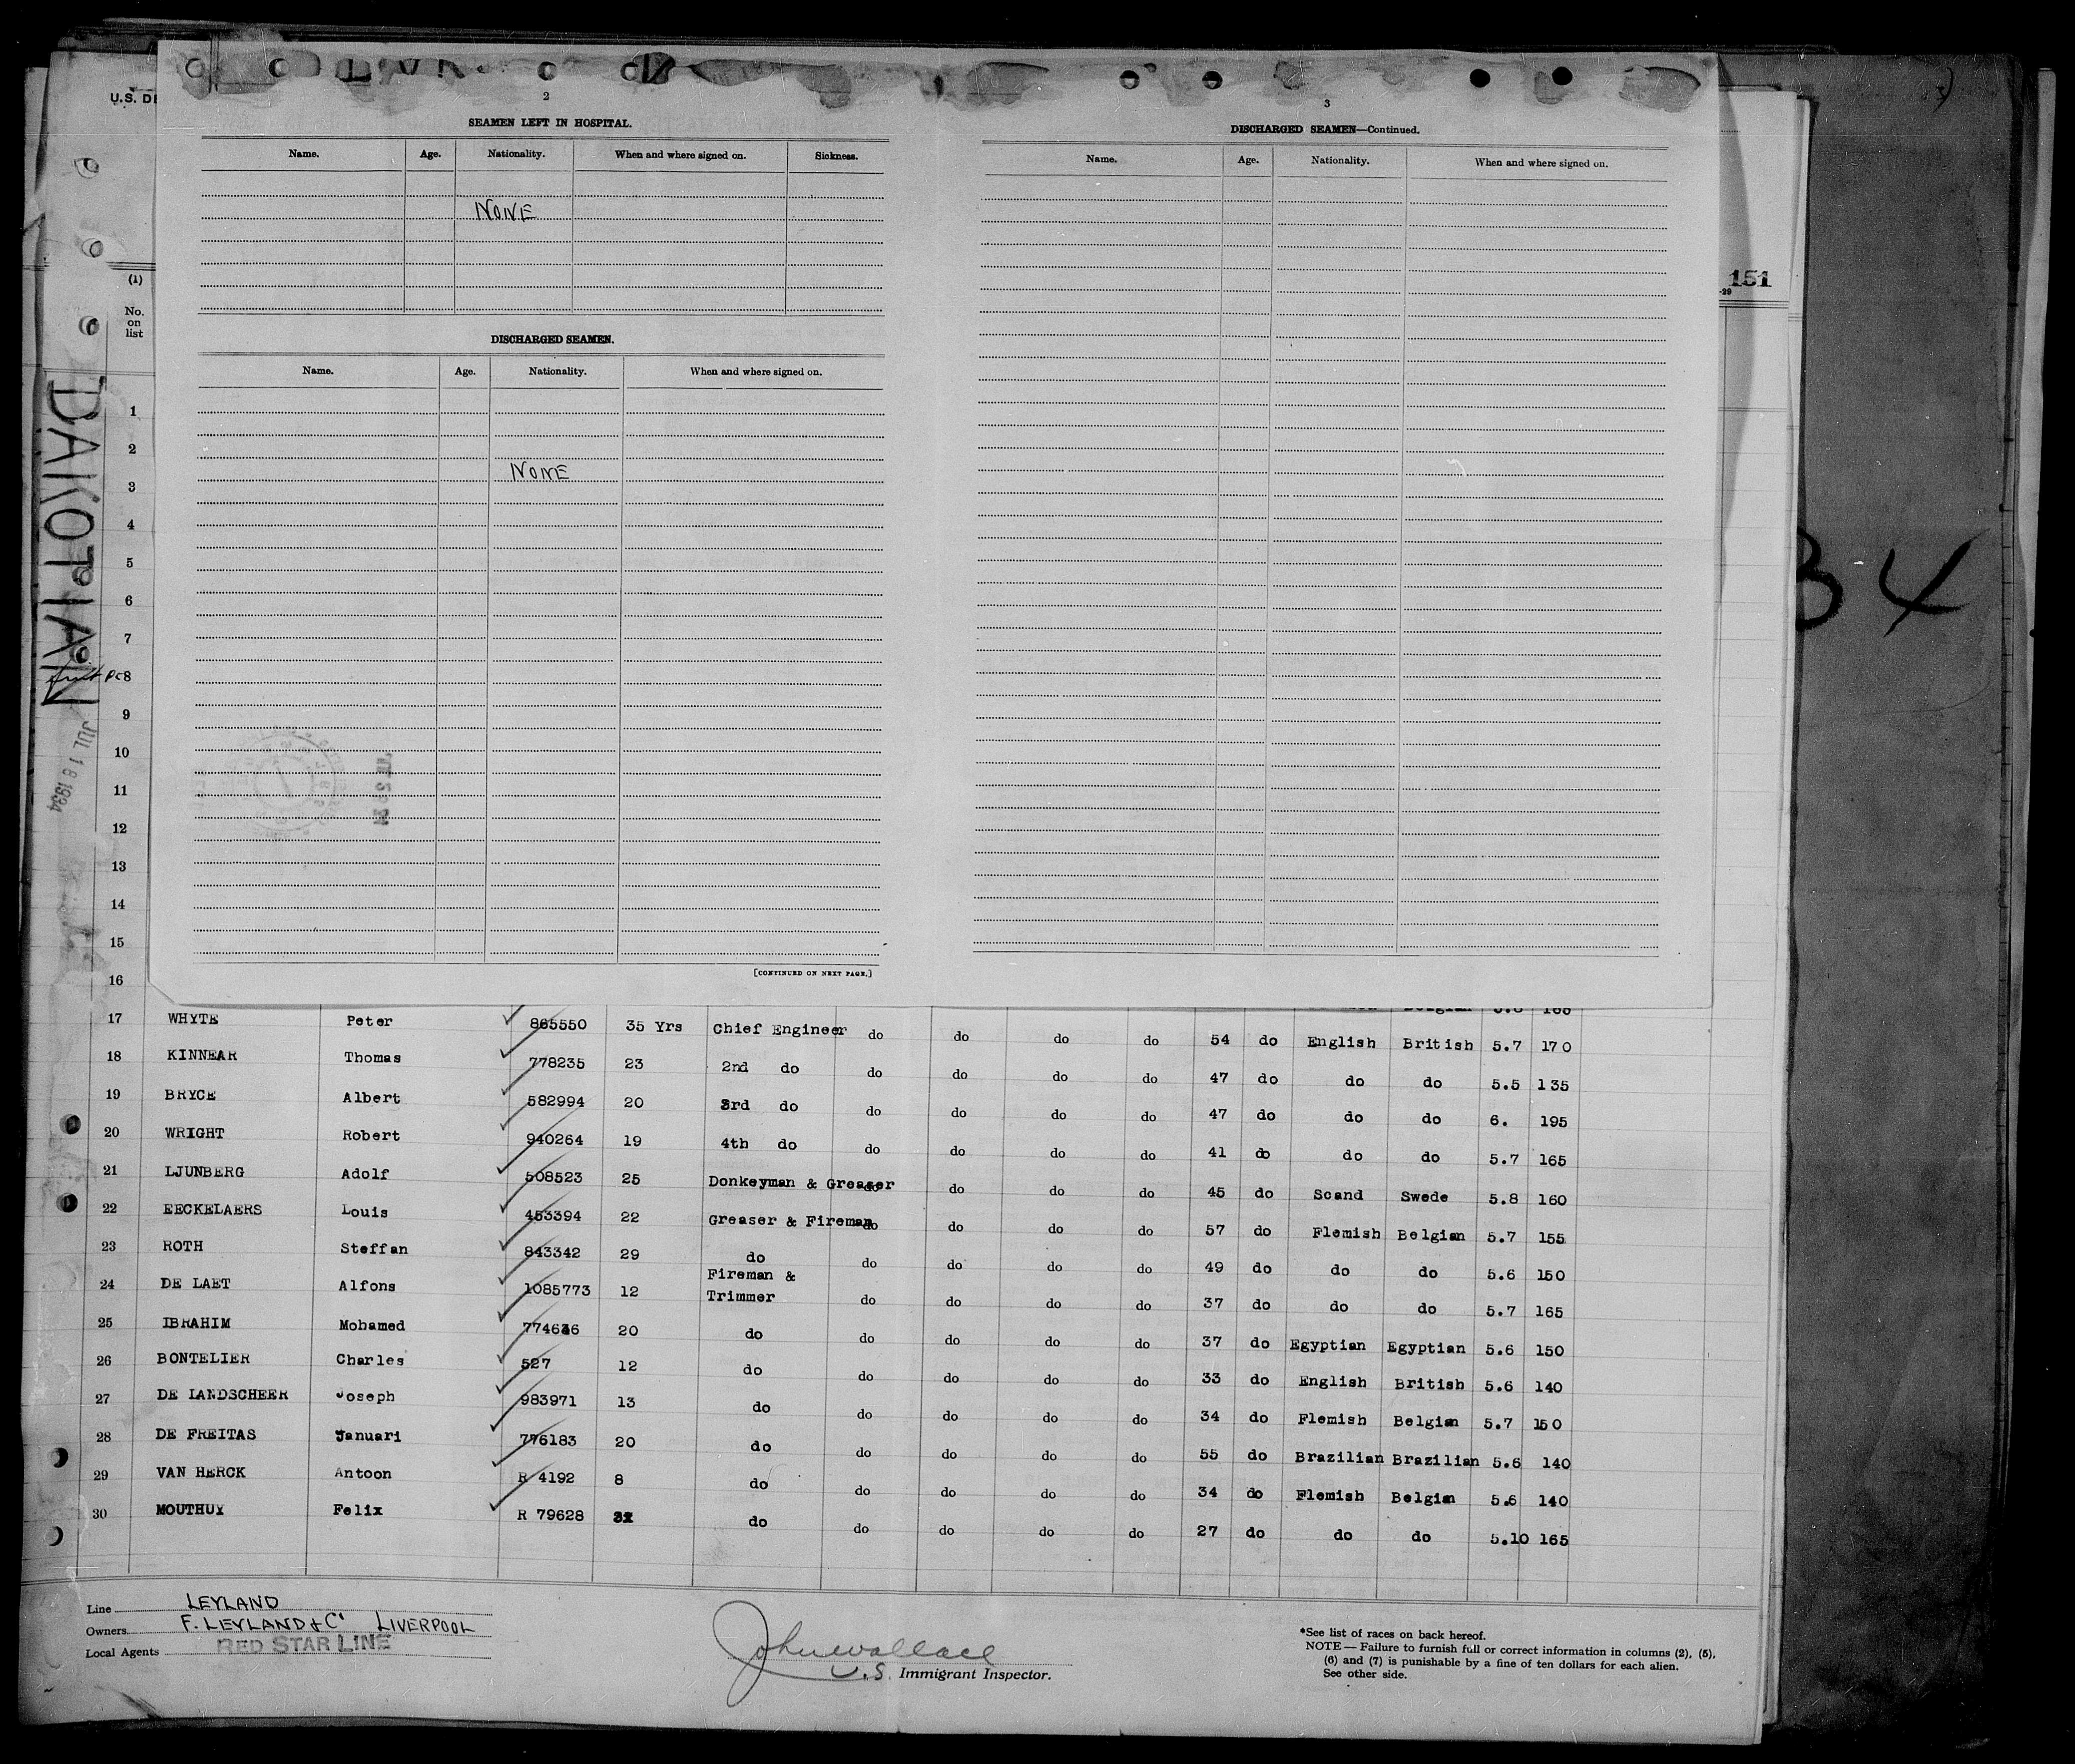 U.S. DE
2
SEAMEN LEFT IN HOSPITAL.
Name. Age. Nationality. When and where signed on. Sickness.
NONE
DISCHARGED SEAMEN.
Name. Age. Nationality. When and where signed on.
NONE
[CONTINUED ON NEXT PAGE.]
3
DISCHARGED SEAMEN—Continued.
Name. Age. Nationality. When and where signed on.
151
-29
34
DAKOTIAN
JUL 16 1934
(1)
No.
on
list
1
2
3
4
5
6
7
8
9
10
11
12
13
14
15
16
17 WHYTE Peter 865550 35 Yrs Chief Engineer do do do do 54 do English British 5.7 170
18 KINNEAR Thomas 778235 23 2nd do do do do do 47 do do do 5.5 135
19 BRYCE Albert 582994 20 3rd do do do do do 47 do do do 6. 195
20 WRIGHT Robert 940264 19 4th do do do do do 41 do do do 5.7 165
21 LJUNBERG Adolf 508523 25 Donkeyman & Greaser do do do do 45 do Scand Swede 5.8 160
22 EECKELAERS Louis 453394 22 Greaser & Fireman do do do do 57 do Flemish Belgian 5.7 155
23 ROTH Steffan 843342 29 do do do do do 49 do do do 5.6 150
24 DE LAET Alfons 1085773 12 Fireman & Trimmer do do do do 37 do do do 5.7 165
25 IBRAHIM Mohamed 774636 20 do do do do do 37 do Egyptian Egyptian 5.6 150
26 BONTELIER Charles 527 12 do do do do do 33 do English British 5.6 140
27 DE LANDSCHEER Joseph 983971 13 do do do do do 34 do Flemish Belgian 5.7 150
28 DE FREITAS Januari 776183 20 do do do do do 55 do Brazilian Brazilian 5.6 140
29 VAN HERCK Antoon R 4192 8 do do do do do 34 do Flemish Belgian 5.6 140
30 MOUTHUY Felix R 79628 do do do do do 27 do do do 5.10 165
Line LEYLAND
Owners F. LEYLAND & Co LIVERPOOL
Local Agents RED STAR LINE
John Wallace
U.S. Immigrant Inspector.
*See list of races on back hereof.
NOTE — Failure to furnish full or correct information in columns (2), (5),
(6) and (7) is punishable by a fine of ten dollars for each alien.
See other side.